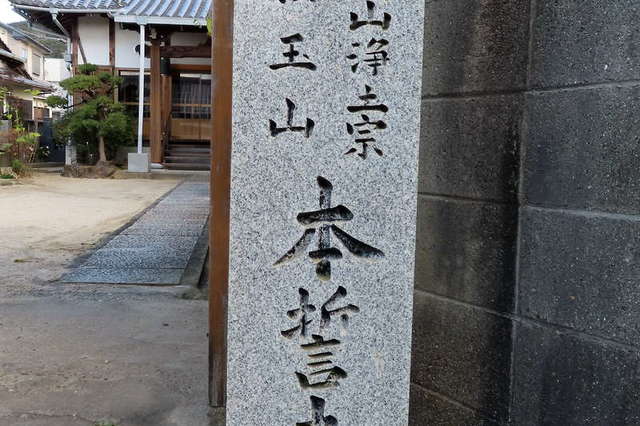 山浄土宗
玉山
本誓